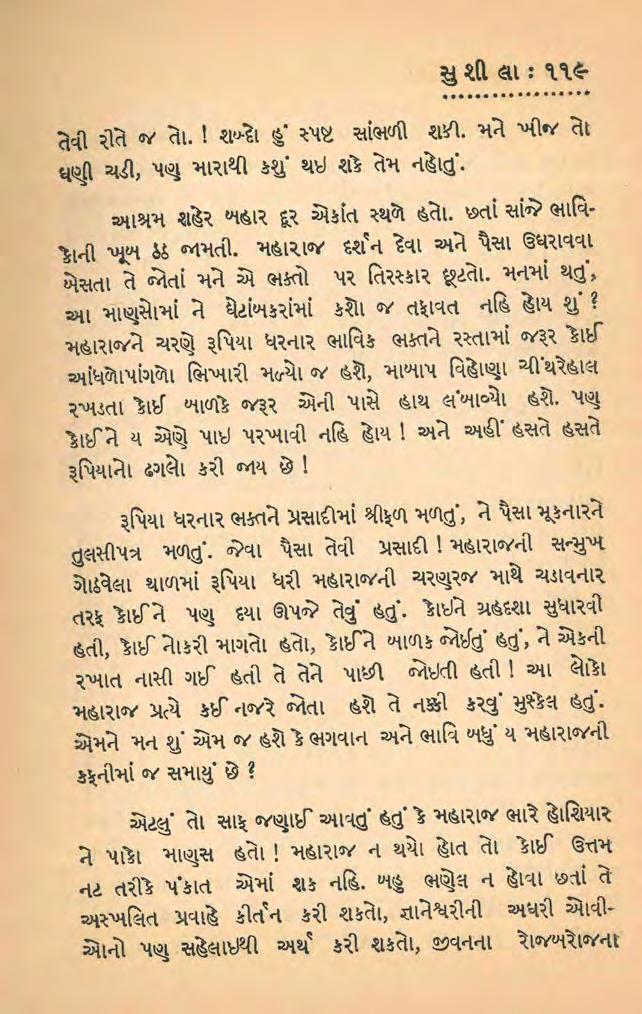 સુશીલા : ૧૧૯
તેવી રીતે જ તો. ! શબ્દો હું સ્પષ્ટ સાંભળી શકી. મને ખીજ તો
ઘણી ચડી, પણ મારાથી કશું થઇ શકે તેમ નહોતું.
આશ્રમ શહેર બહાર દૂર એકાંત સ્થળે હતો. છતાં સાંજે ભાવિ-
કોની ખૂબ ઠઠ જામતી. મહારાજ દર્શન દેવા અને પૈસા ઉઘરાવવા
બેસતા તે જોતાં મને એ ભક્તો પર તિરસ્કાર છૂટતો. મનમાં થતું,
આ માણસોમાં ને ઘેટાંબકરાંમાં કશો જ તફાવત નહિ હોય શું ?
મહારાજને ચરણે રૂપિયા ધરનાર ભાવિક ભક્તને રસ્તામાં જરૂર કોઈ
આંધળોપાંગળો ભિખારી મળ્યો જ હશે, માબાપ વિહોણા ચીંથરેહાલ
રખડતા કોઈ બાળકે જરૂર એની પાસે હાથ લંબાવ્યો હશે. પણ
કોઈને ય એણે પાઇ પરખાવી નહિ હોય ! અને અહીં હસતે હસતે
રૂપિયાનો ઢગલો કરી જાય છે !
રૂપિયા ધરનાર ભક્તને પ્રસાદીમાં શ્રીફળ મળતું, ને પૈસા મૂકનારને
તુલસીપત્ર મળતું. જેવા પૈસા તેવી પ્રસાદી ! મહારાજની સન્મુખ
ગોઠવેલા થાળમાં રૂપિયા ધરી મહારાજની ચરણરજ માથે ચડાવનાર
તરફ કોઈને પણ દયા ઊપજે તેવું હતું. કોઇને ગ્રહદશા સુધારવી
હતી, કોઈ નોકરી માગતો હતો, કોઈને બાળક જોઇતું હતું, ને એકની
રખાત નાસી ગઈ હતી તે તેને પાછી જોઇતી હતી ! આ લોકો
મહારાજ પ્રત્યે કઈ નજરે જોતા હશે તે નક્કી કરવું મુશ્કેલ હતું.
એમને મન શું એમ જ હશે કે ભગવાન અને ભાવિ બધું ય મહારાજની
કફનીમાં જ સમાયું છે ?
એટલું તો સાફ જણાઈ આવતું હતું કે મહારાજ ભારે હોશિયાર
ને પાકો માણસ હતો ! મહારાજ ન થયો હોત તો કોઈ ઉત્તમ
નટ તરીકે પંકાત એમાં શક નહિ. બહુ ભણેલ ન હોવા છતાં તે
અસ્ખલિત પ્રવાહે કીર્તન કરી શકતો, જ્ઞાનેશ્વરીની અઘરી ઓવી-
ઓનો પણ સહેલાઇથી અર્થ કરી શકતો, જીવનના રોજબરોજના